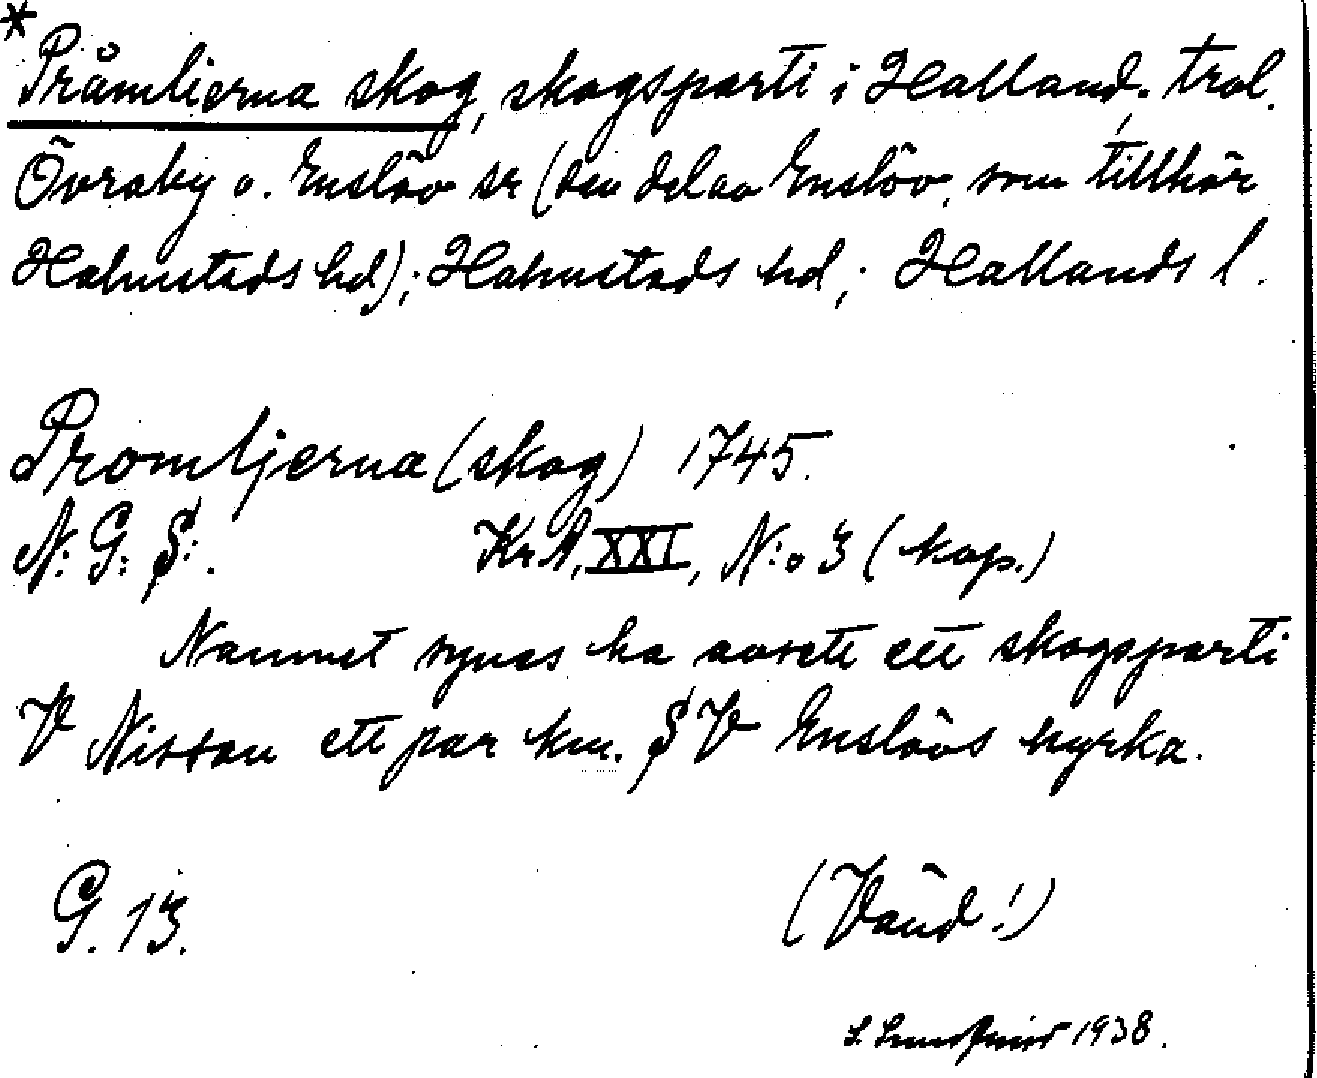 * Pråmlierna skog, skogsparti i Halland, trol.
Övraby o. Enslöv sr (den del av Enslöv, som tillhör
Halmstads hd); Halmstads hd; Hallands l.
Promljerna (skog) 1745.
N: G: S:.
KrA, XXI, N:o 3 (kop.)
Namnet synes ha avsett ett skogsparti
V Nissan ett par km. S V Enslövs kyrka.
G. 13.
(Vänd!)
1938.